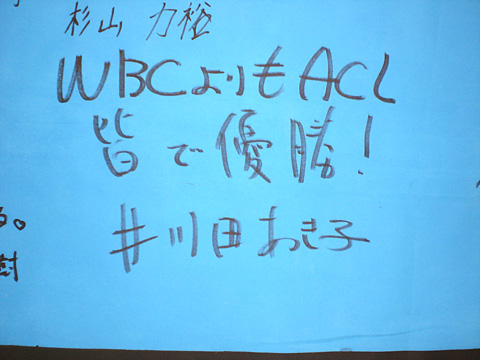 杉山 力裕
WBCよりもACL
皆で優勝!
井川田あき子
る。
樹